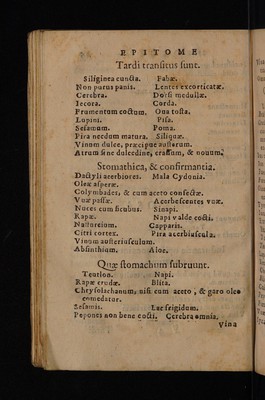 EPITOME
Tardi transitus sunt.
Siliginea cuncta. Fabæ.
Non purus panis. Lentes excorticatæ.
Cerebra. Dorsi medullæ.
Iecora. Corda.
Frumentum coctum. Oua tosta.
Lupini. Pisa.
Sesamum. Poma.
Pira necdum matura. Siliquæ.
Vinum dulce, præcipue austerum.
Atrum sine dulcedine, crassum, & nouum.
Stomachica, & confirmantia.
Dactyli acerbiores. Mala Cydonia.
Oleæ asperæ.
Colymbades, & cum aceto confectæ.
Vuæ passæ. Acerbescentes vuæ.
Nuces cum ficubus. Sinapi.
Rapæ. Napi valde cocti.
Nasturcium. Capparis.
Citri cortex. Pira acerbiuscula.
Vinum austeriusculum.
Absinthium. Aloe.
Quæ stomachum subruunt.
Teutlon. Napi.
Rapæ crudæ. Blita.
Chrysolachanum, nisi cum aceto, & garo oleo
comedatur.
Sesamis. Lac frigidum.
Pepones non bene cocti. Cerebra omnia.
Vina